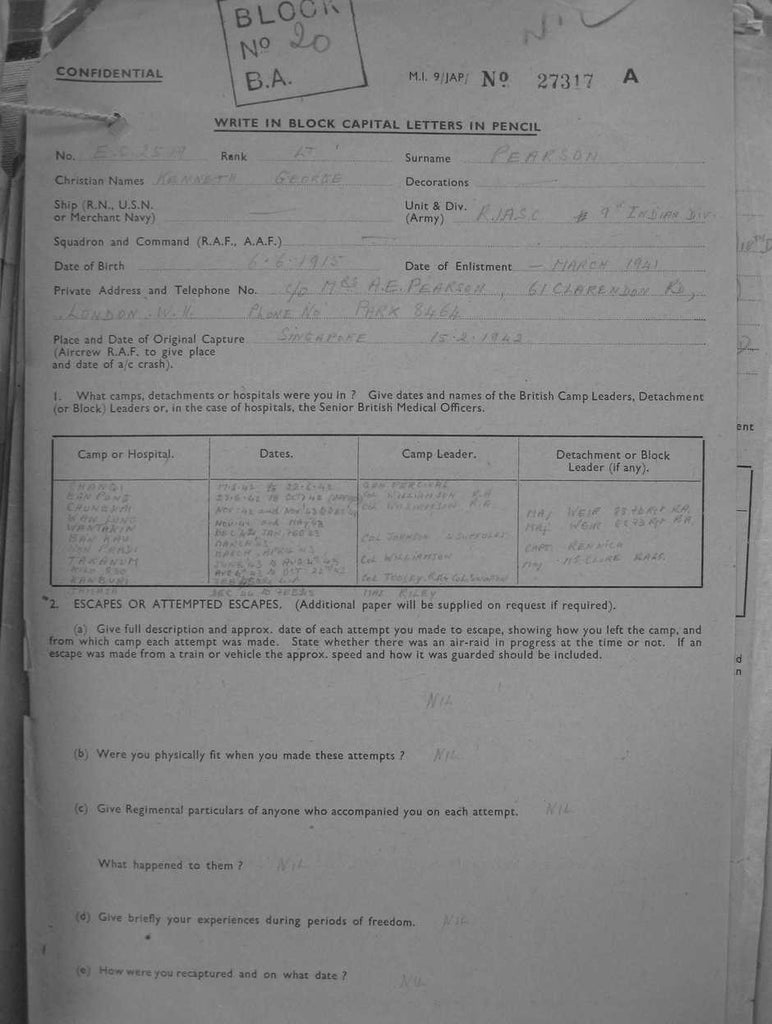 BLOCK
Nº 20
B.A.
NIL
CONFIDENTIAL
M.I. 9/JAP/ Nº 27317 A
WRITE IN BLOCK CAPITAL LETTERS IN PENCIL
No. Rank LT Surname PEARSON
Christian Names KENNETH GEORGE Decorations
Ship (R.N., U.S.N. or Merchant Navy) — Unit & Div. (Army) R.I.A.S.C 9th INDIAN DIV.
Squadron and Command (R.A.F., A.A.F.) —
Date of Birth 6·6·1915 Date of Enlistment — MARCH 1941
Private Address and Telephone No. c/o MRS A.E. PEARSON, 61 CLARENDON RD,
LONDON. W.11. PHONE NO PARK 8464
Place and Date of Original Capture SINGAPORE 15·2·1942
(Aircrew R.A.F. to give place
and date of a/c crash).
1. What camps, detachments or hospitals were you in ? Give dates and names of the British Camp Leaders, Detachment
(or Block) Leaders or, in the case of hospitals, the Senior British Medical Officers.
Camp or Hospital. Dates. Camp Leader. Detachment or Block Leader (if any).
CHANGI 17·2·42 to 22·6·42 GEN PERCIVAL
BAN PONG COL WILLIAMSON R.A
CHUNGKAI COL WILLIAMSON R.A.
MAJ WEIR
MAJ WEIR
BAN KAU COL JOHNSON SUFFOLKS
MARCH, APRIL 43 CAPT. RENNICK
TAKANUN COL WILLIAMSON
KANBURI
DEC 44 to FEB 45 MAJ RILEY
*2. ESCAPES OR ATTEMPTED ESCAPES. (Additional paper will be supplied on request if required).
(a) Give full description and approx. date of each attempt you made to escape, showing how you left the camp, and
from which camp each attempt was made. State whether there was an air-raid in progress at the time or not. If an
escape was made from a train or vehicle the approx. speed and how it was guarded should be included.
NIL
(b) Were you physically fit when you made these attempts ? NIL
(c) Give Regimental particulars of anyone who accompanied you on each attempt. NIL
What happened to them ? NIL
(d) Give briefly your experiences during periods of freedom. NIL
(e) How were you recaptured and on what date ? NIL